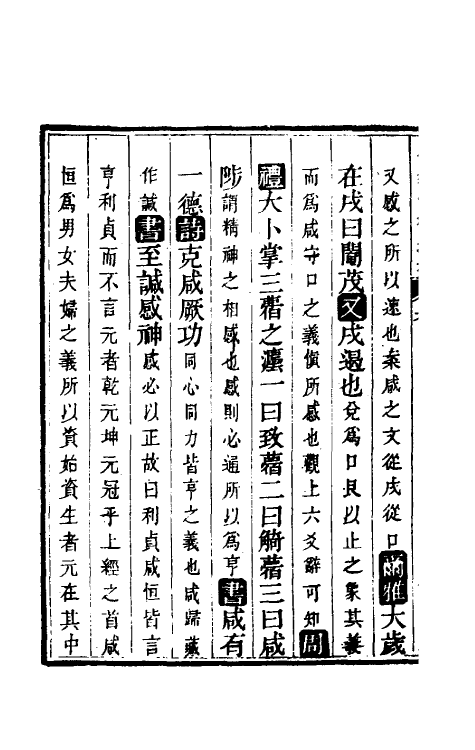 又感之所以速也案咸之文從戌從口爾雅大歲
在戌曰閹茂又戌遏也兌爲口艮以止之象其義
而爲咸守口之義慎所感也觀上六爻辭可知周
禮大卜掌三䕮之灋一曰致䕮二曰觭䕮三曰咸
陟謂精神之相感也感則必通所以爲亨書咸有
一德詩克咸厥功同心同力皆亨之義也咸歸藏
作諴書至諴感神感必以正故曰利貞咸恒皆言
亨利貞而不言元者乾元坤元冠乎上經之首咸
恒爲男女夫婦之義所以資始資生者元在其中